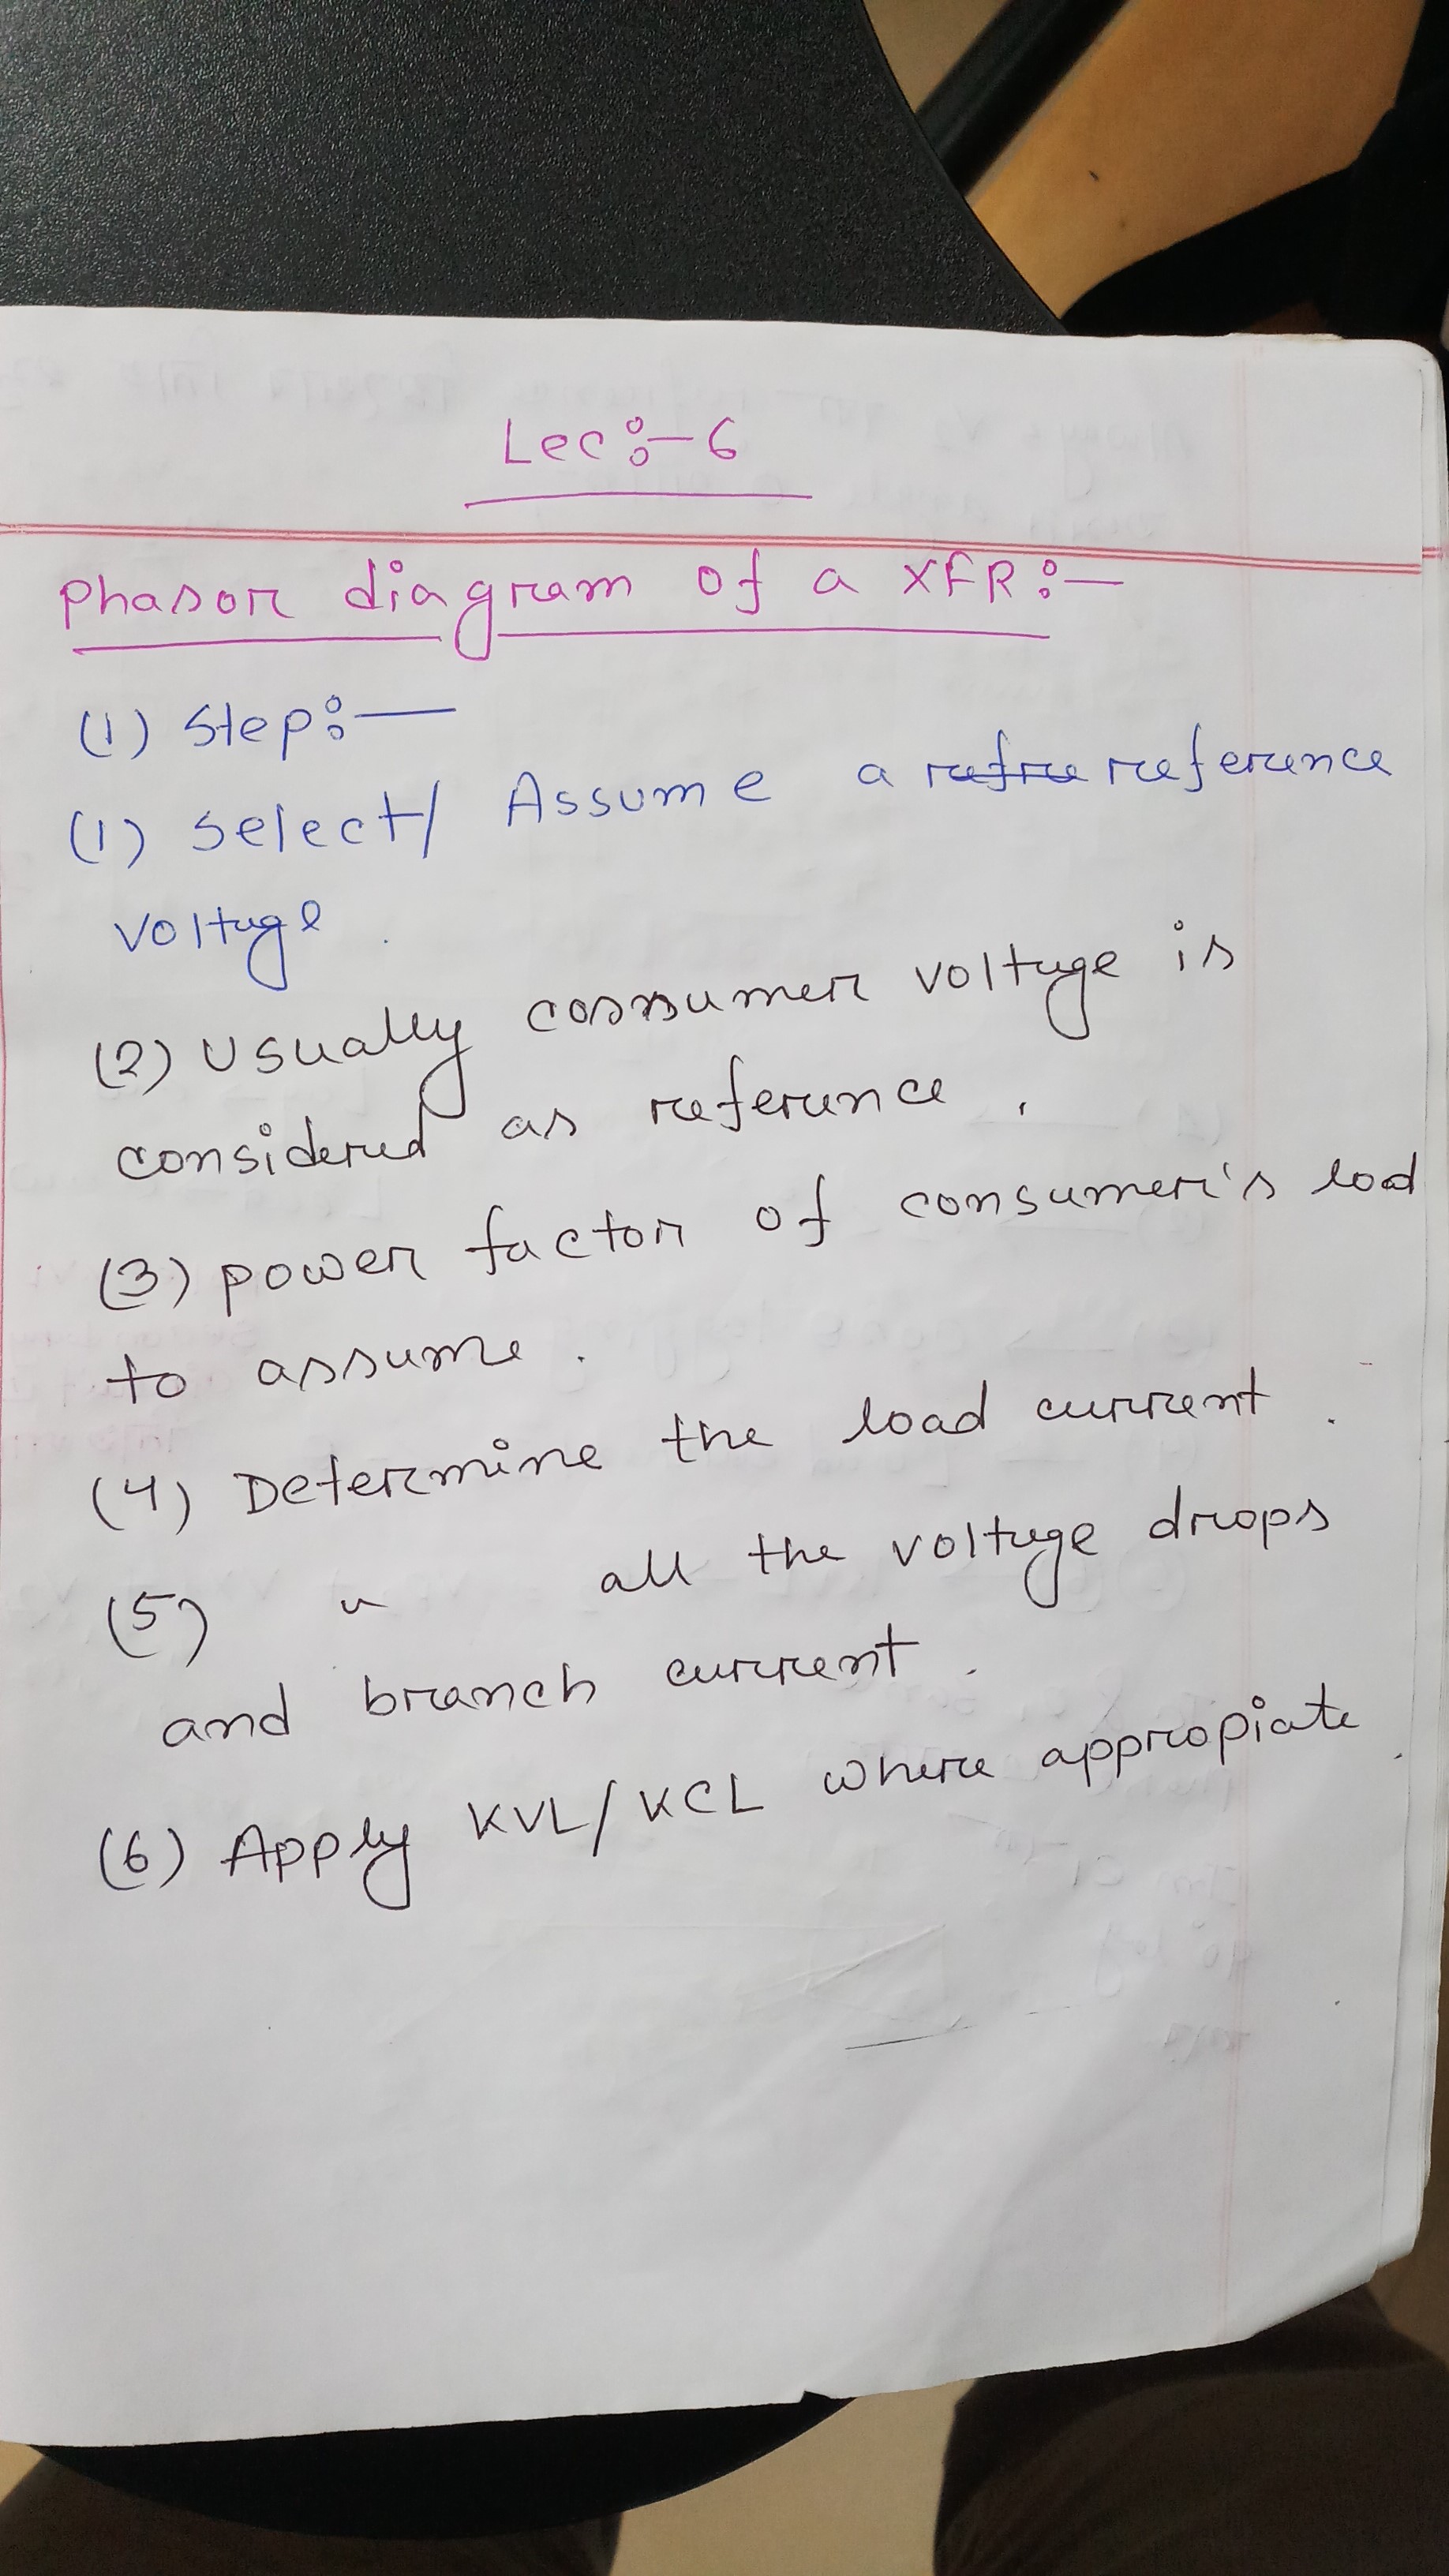 Lec:-6
Phasor diagram of a XFR:-
(1) Step:-
(1) Select/ Assume a refre reference
voltage.
(2) Usually consumer voltage is
considered as reference.
(3) power factor of consumer's lod
to assume.
(4) Determine the load current.
(5) " all the voltage drops
and branch current.
(6) Apply KVL/KCL where appropiate.